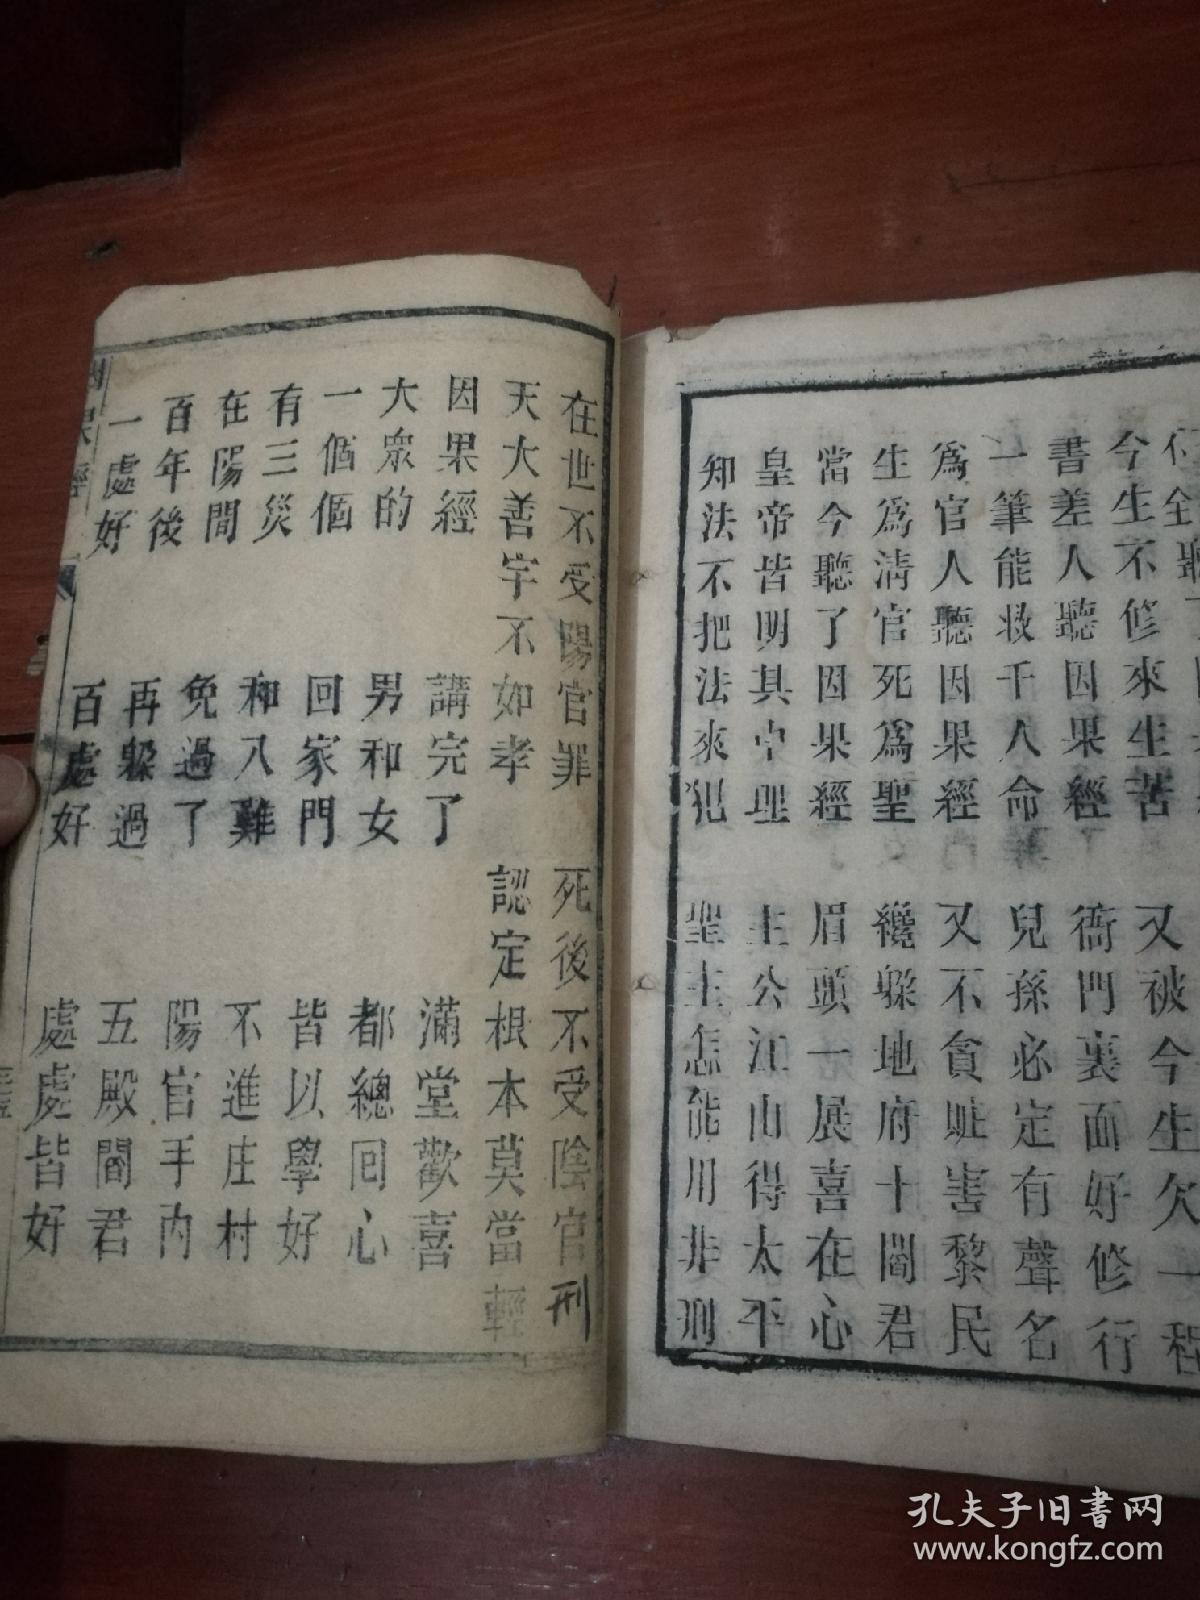 今生不修來生苦 又被今生欠一程
書差人聽因果經 衙門裏面好修行
一筆能救千人命 兒孫必定有聲名
爲官人聽因果經 又不貪賍害黎民
生爲清官死爲聖 纔躲地府十閻君
當今聽了因果經 眉頭一展喜在心
皇帝皆明其中理 主公江山得太平
知法不把法來犯 聖主怎能用非刑
在世不受陽官罪 死後不受陰官刑
天大善字不如孝 認定根本莫當輕
因果經 講完了 滿堂歡喜
大衆的 男和女 都總回心
一個個 回家門 皆以學好
有三災 和八難 不進庄村
在陽間 免過了 陽官手內
百年後 再躲過 五殿閻君
一處好 百處好 處處皆好
因果經
孔夫子旧书网
www.kongfz.com